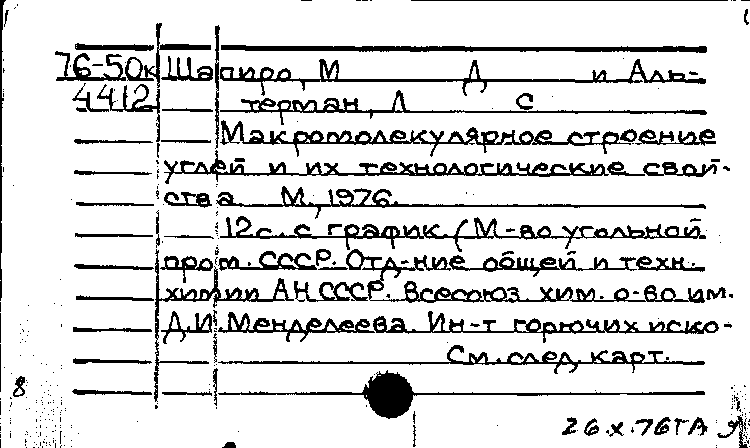 76-50к Шапиро, М Д и Аль-
4412 терман, Л С
Макромолекулярное строение
углей и их технологические свой-
ства. М., 1976.
12с. с график. (М-во угольной
пром. СССР. Отд-ние общей и техн.
химии АН СССР. Всесоюз. хим. о-во им.
Д.И. Менделеева. Ин-т горючих иско-
См. след. карт.
8
26.X.76ТА